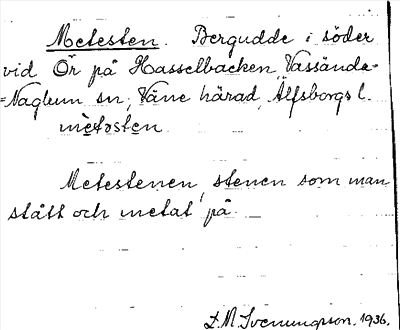 Metesten. Bergudde i söder
vid Ör på Hasselbacken, Vassända-
=Naglum sn, Väne härad, Älfsborgs l.
metəsten

Metestenen, stenen som man
stått och metat på.

D. M. Svenungsson. 1936.